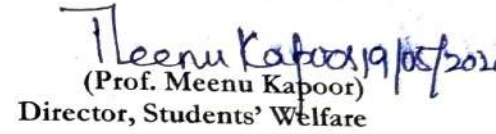 Meenu Kapoor 19/05/202
(Prof. Meenu Kapoor)
Director, Students' Welfare